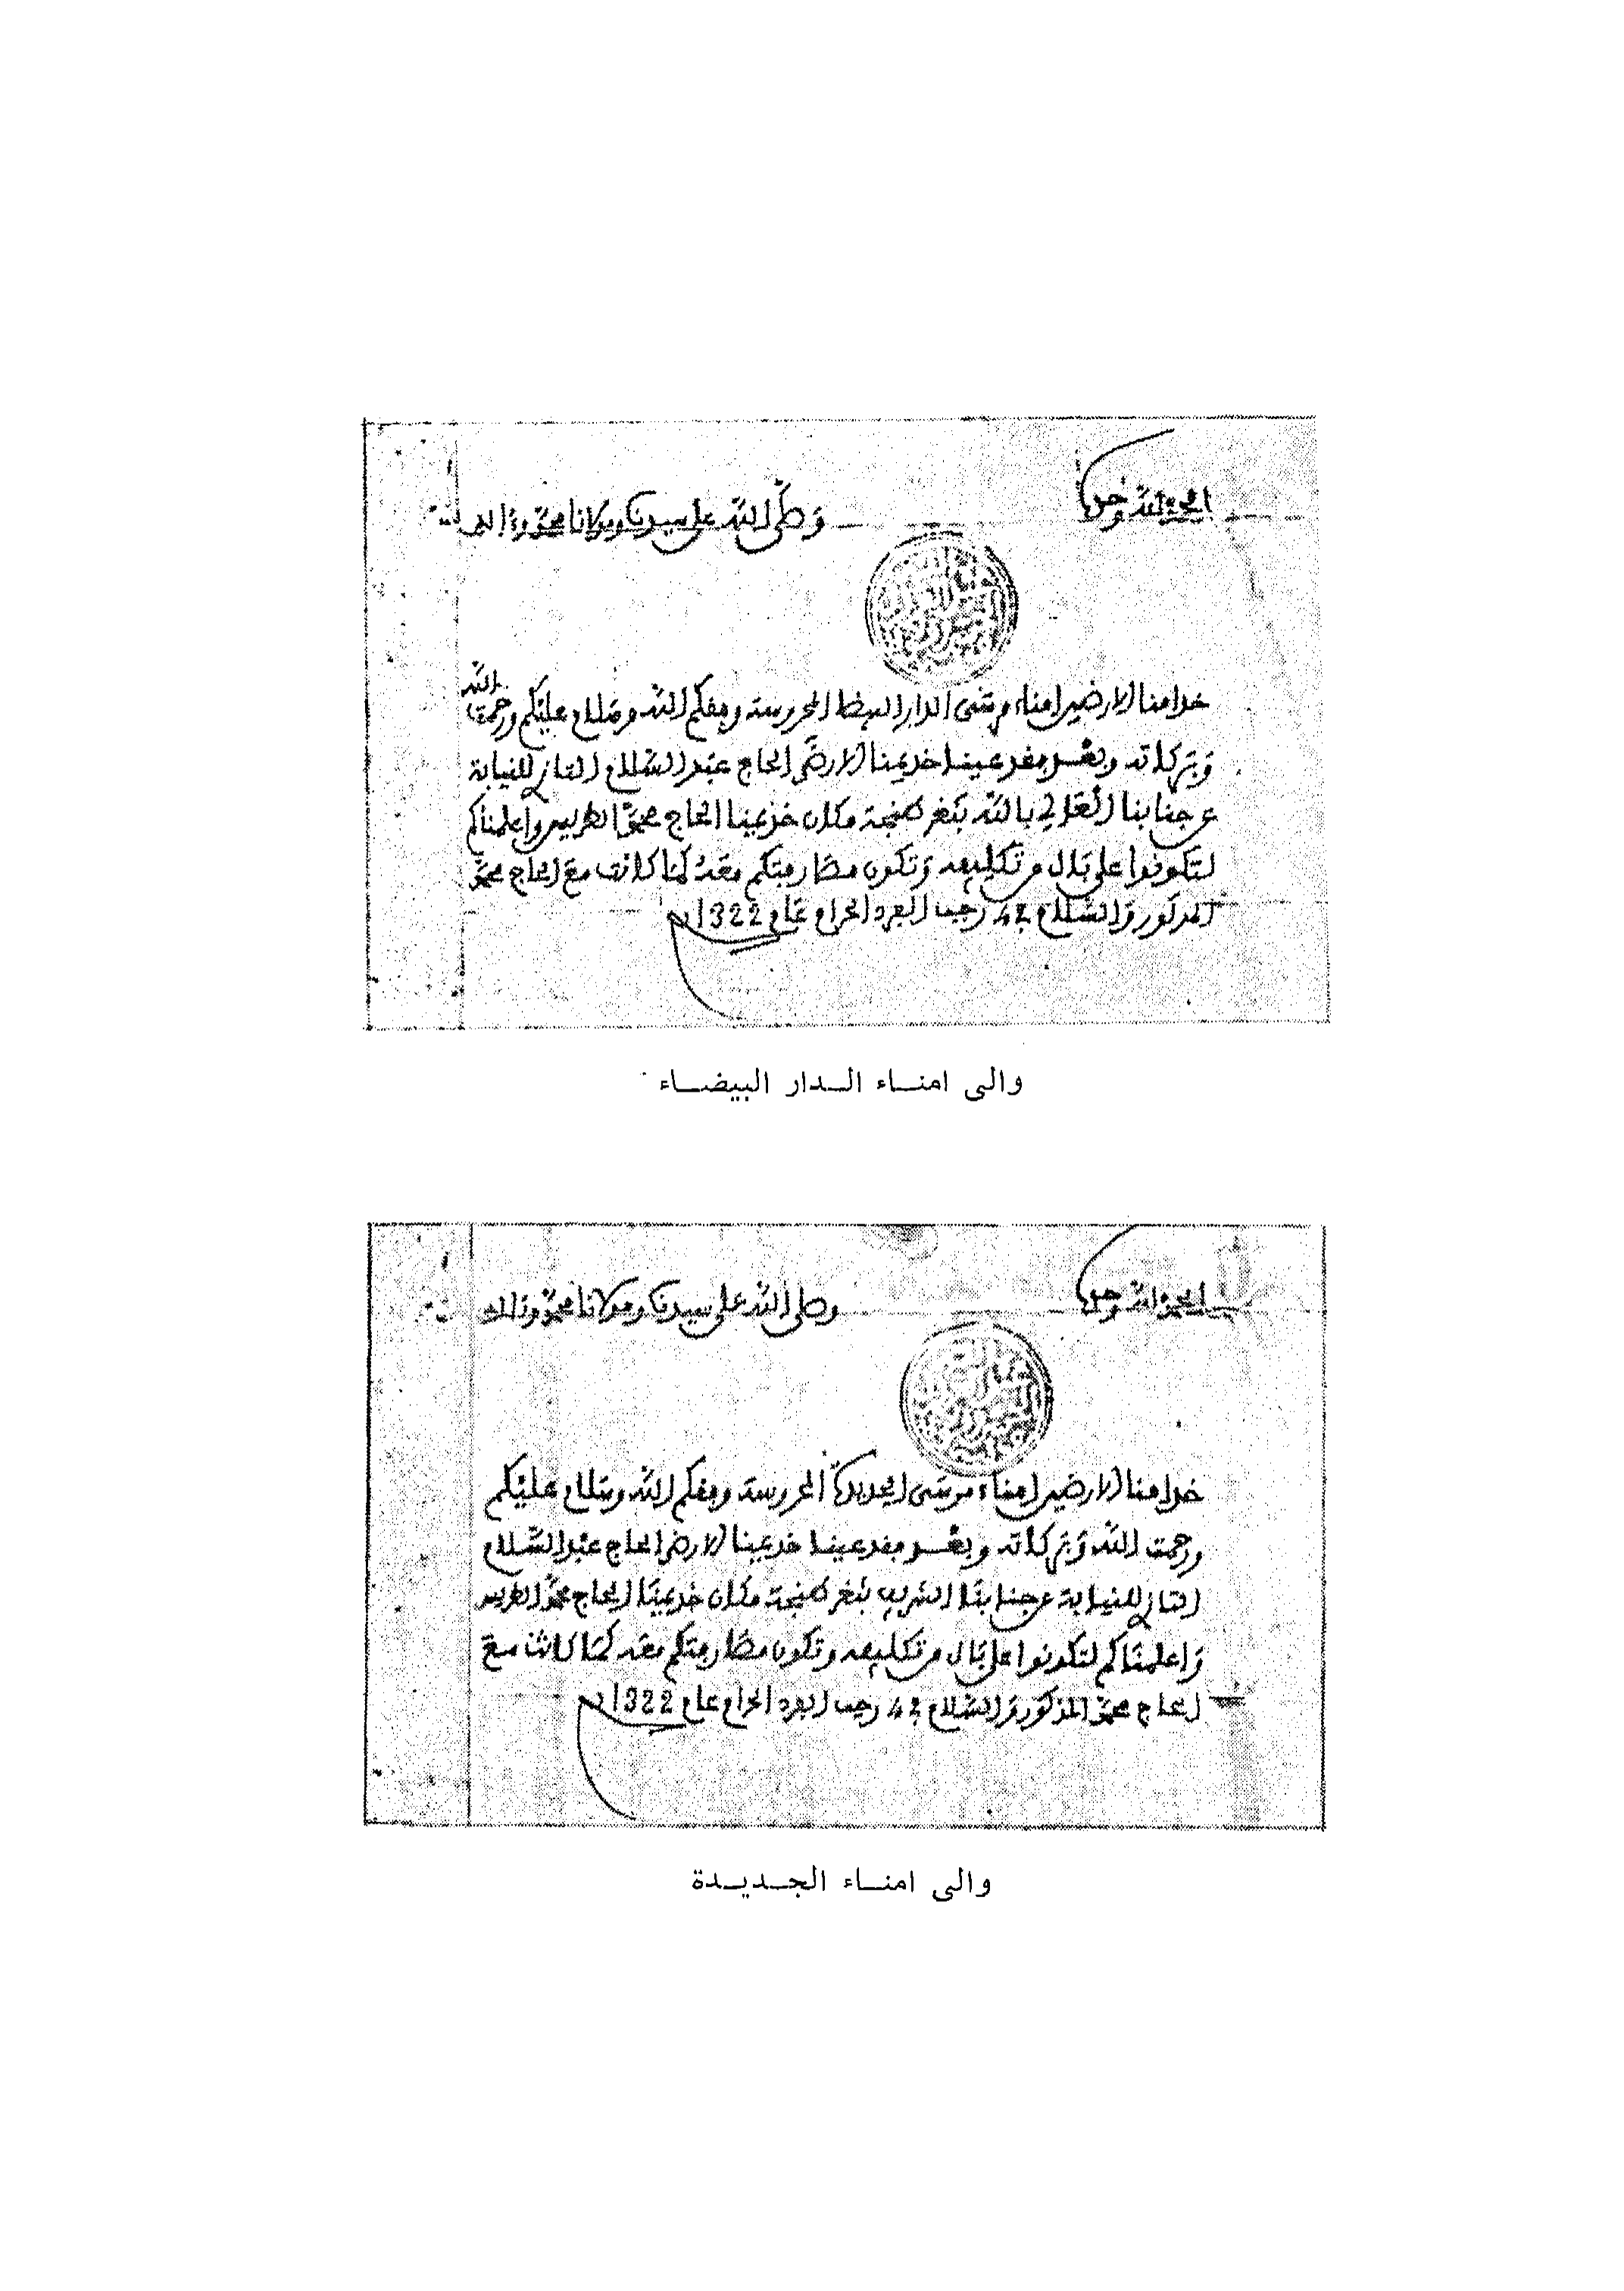 الحمد لله وحده
وصلى الله على سيدنا ومولانا محمد وءاله
خدامنا الارضين امناء مرسى الدار البيضا المحروسة وفقكم الله وسلام عليكم ورحمت الله
وبركاته وبعد فقد عينا خديمنا الارضى الحاج عبد السلام التازي للنيابة
عن جنابنا العالي بالله بثغر طنجة مكان خديمنا الحاج محمد الطريس وأعلمناكم
لتكونوا على بال من تكليفه وتكون مفاوضتكم معه كما كانت مع الحاج محمد
المذكور والسلام في رجب الفرد الحرام عام 1322
والى امناء الدار البيضاء
الحمد لله وحده
وصلى الله على سيدنا ومولانا محمد وءاله
خدامنا الارضين امناء مرسى الجديدة المحروسة وفقكم الله وسلام عليكم
ورحمت الله وبركاته وبعد فقد عينا خديمنا الارضى الحاج عبد السلام
التازي للنيابة عن جنابنا الشريف بثغر طنجة مكان خديمنا الحاج محمد الطريس
واعلمناكم لتكونوا على بال من تكليفه وتكون مفاوضتكم معه كما كانت مع
الحاج محمد المذكور والسلام في رجب الفرد الحرام عام 1322
والى امناء الجديدة